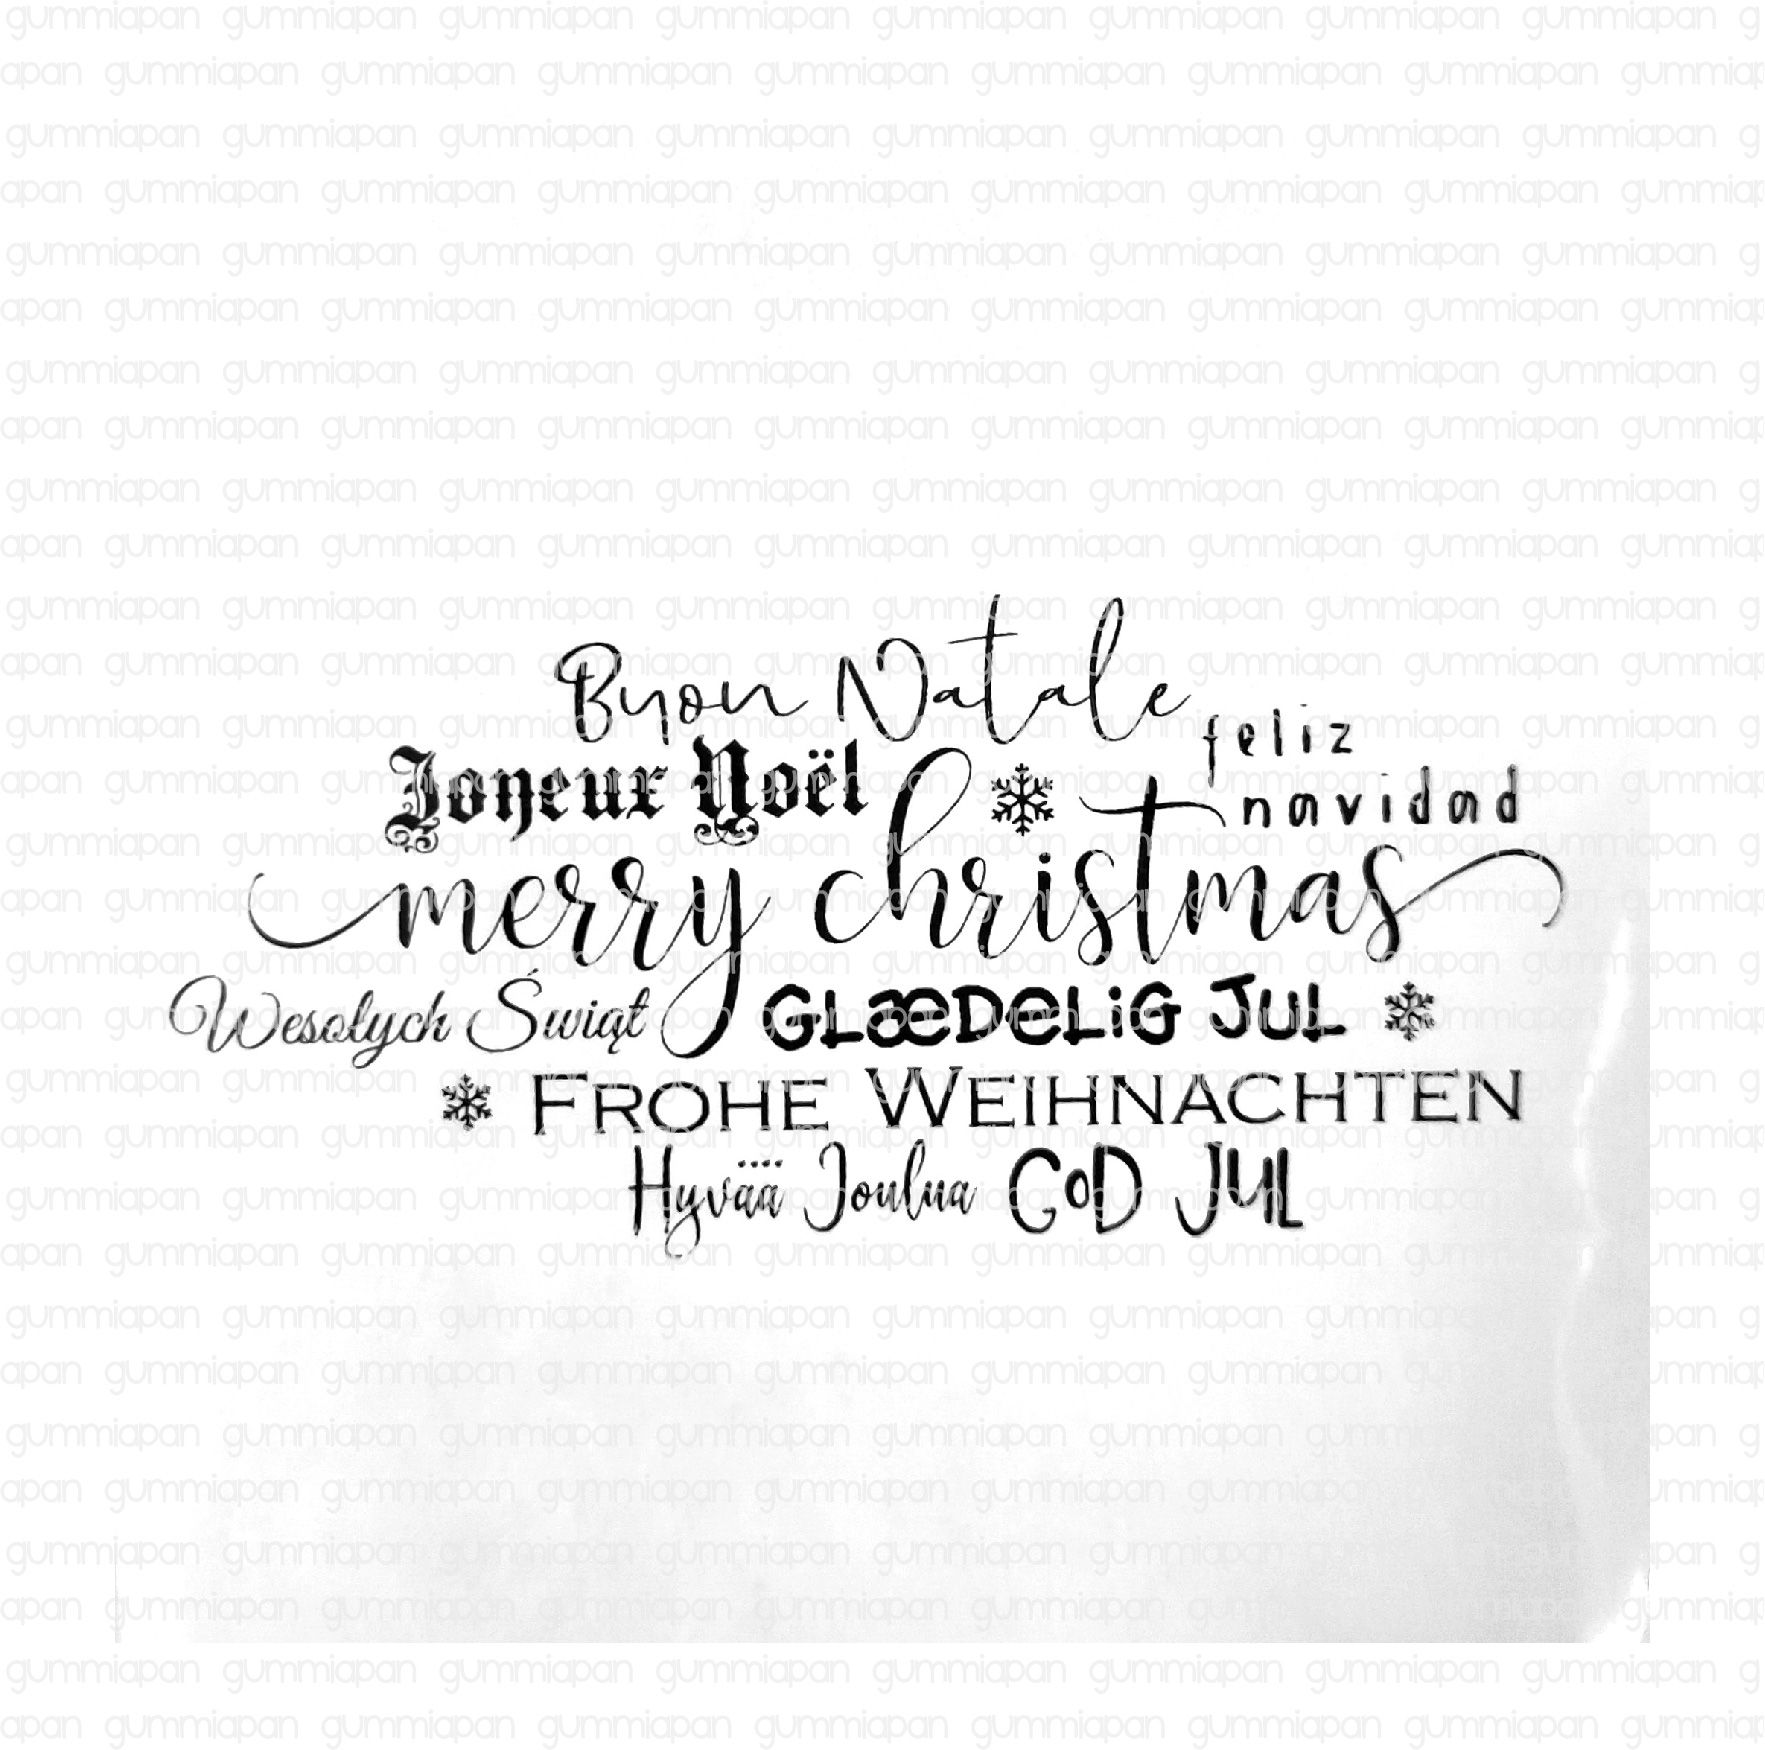 Buon Natale
feliz
Joyeux Noël
navidad
merry christmas
Wesołych Świąt GLÆDELIG JUL
FROHE WEIHNACHTEN
Hyvää Joulua GOD JUL
gummiapan